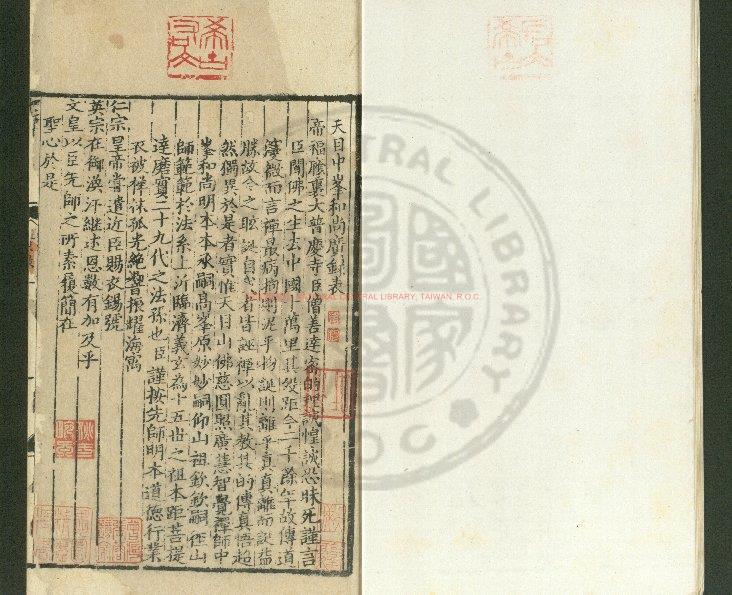 天目中峯和尚廣錄表
帝福勝裏大普慶寺臣僧善達密的理誠惶誠恐昧死謹言
臣聞佛之生去中國十萬里其歿距今二千餘年故傳道
寖微而言禪最病拘則泥乎物誕則離乎真真離而誕益
勝故今之眩誕自
者皆誣禪以亂其教其的傳真悟超
然獨異於是者實惟天目山佛慈圓照廣慧智覺禪師中
峯和尚明本本承嗣高峯原妙妙嗣仰山祖欽欽嗣徑山
師範範於法系上沂臨濟義玄為十五世之祖本距菩提
達磨實二十九代之法孫也臣謹按先師明本道德行業
衣被禪林孤光絕響振耀海㝢
仁宗皇帝嘗遣近臣賜衣錫號
英宗在御渙汗繼述恩數有加及乎
文皇以臣先師之所素履簡在
聖心於是
CENTRAL LIBRARY
R O C
NATIONAL CENTRAL LIBRARY, TAIWAN, R.O.C.